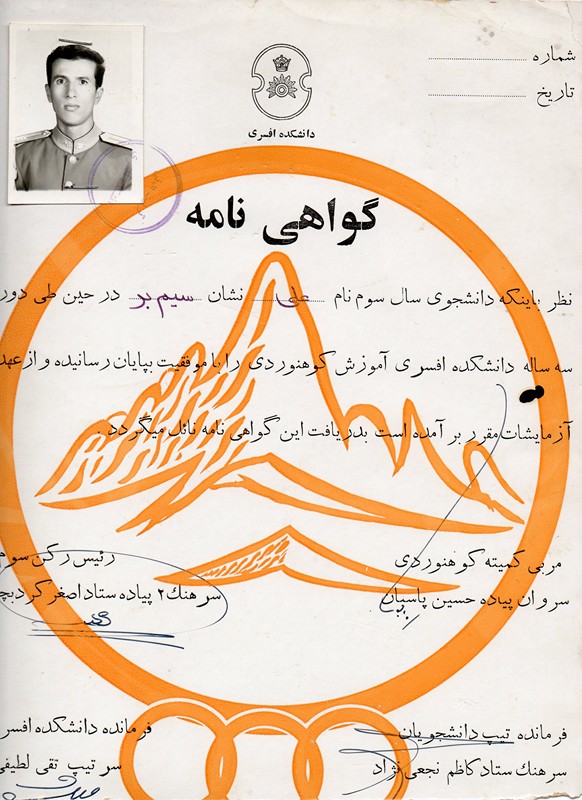 شماره
تاریخ
دانشکده افسری
گواهی نامه
نظر باینکه دانشجوی سال سوم نام علی نشان سیم بر در حین طی دور
سه ساله دانشکده افسری آموزش کوهنوردی را با موفقیت بپایان رسانیده و از عهد
آزمایشات مقرر بر آمده است بدریافت این گواهی نامه نائل میگردد.
مربی کمیته کوهنوردی
سروان پیاده حسین پاسبان
رئیس رکن سوم
سرهنگ ۲ پیاده ستاد اصغر کردبچ
فرمانده تیپ دانشجویان
سرهنگ ستاد کاظم نجعی نژاد
فرمانده دانشکده افسر
سرتیپ تقی لطیفی